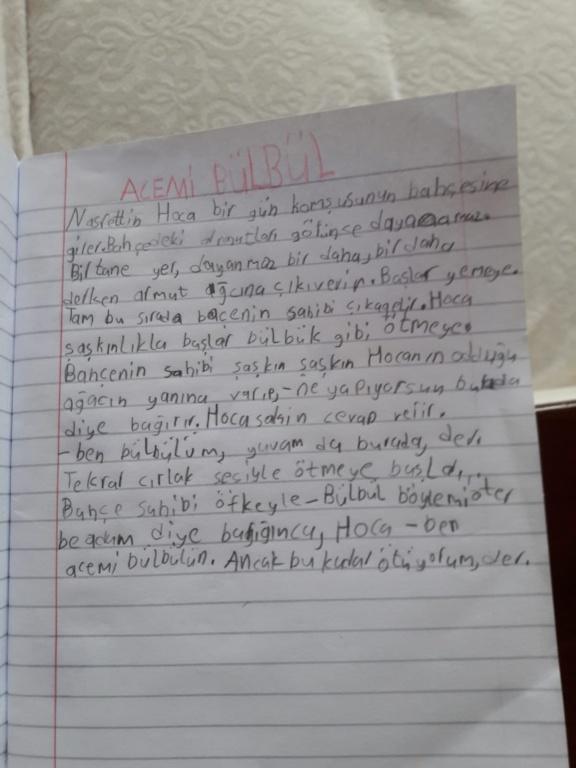 ACEMİ BÜLBÜL
Nasrettin Hoca bir gün komşusunun bahçesine
girer. Bahçedeki armutları görünce dayanamaz.
Bir tane yer, dayanmaz bir daha, bir daha
derken armut ağcına çıkıverir. Başlar yemeye.
Tam bu sırada baçenin sahibi çıkagelir. Hoca
şaşkınlıkla başlar bülbük gibi ötmeye.
Bahçenin sahibi şaşkın şaşkın Hocanın olduğu
ağacın yanına varıp, -ne yapıyorsun burada
diye bağırır. Hoca sakin cevap verir.
-ben bülbülüm, yuvam da burada, der.
Tekrar cırlak sesiyle ötmeye başlar...
Bahçe sahibi öfkeyle - Bülbül böylemi öter
be adam diye bağığınca, Hoca - ben
acemi bülbülün. Ancak bu kadar ötüyorum, der.